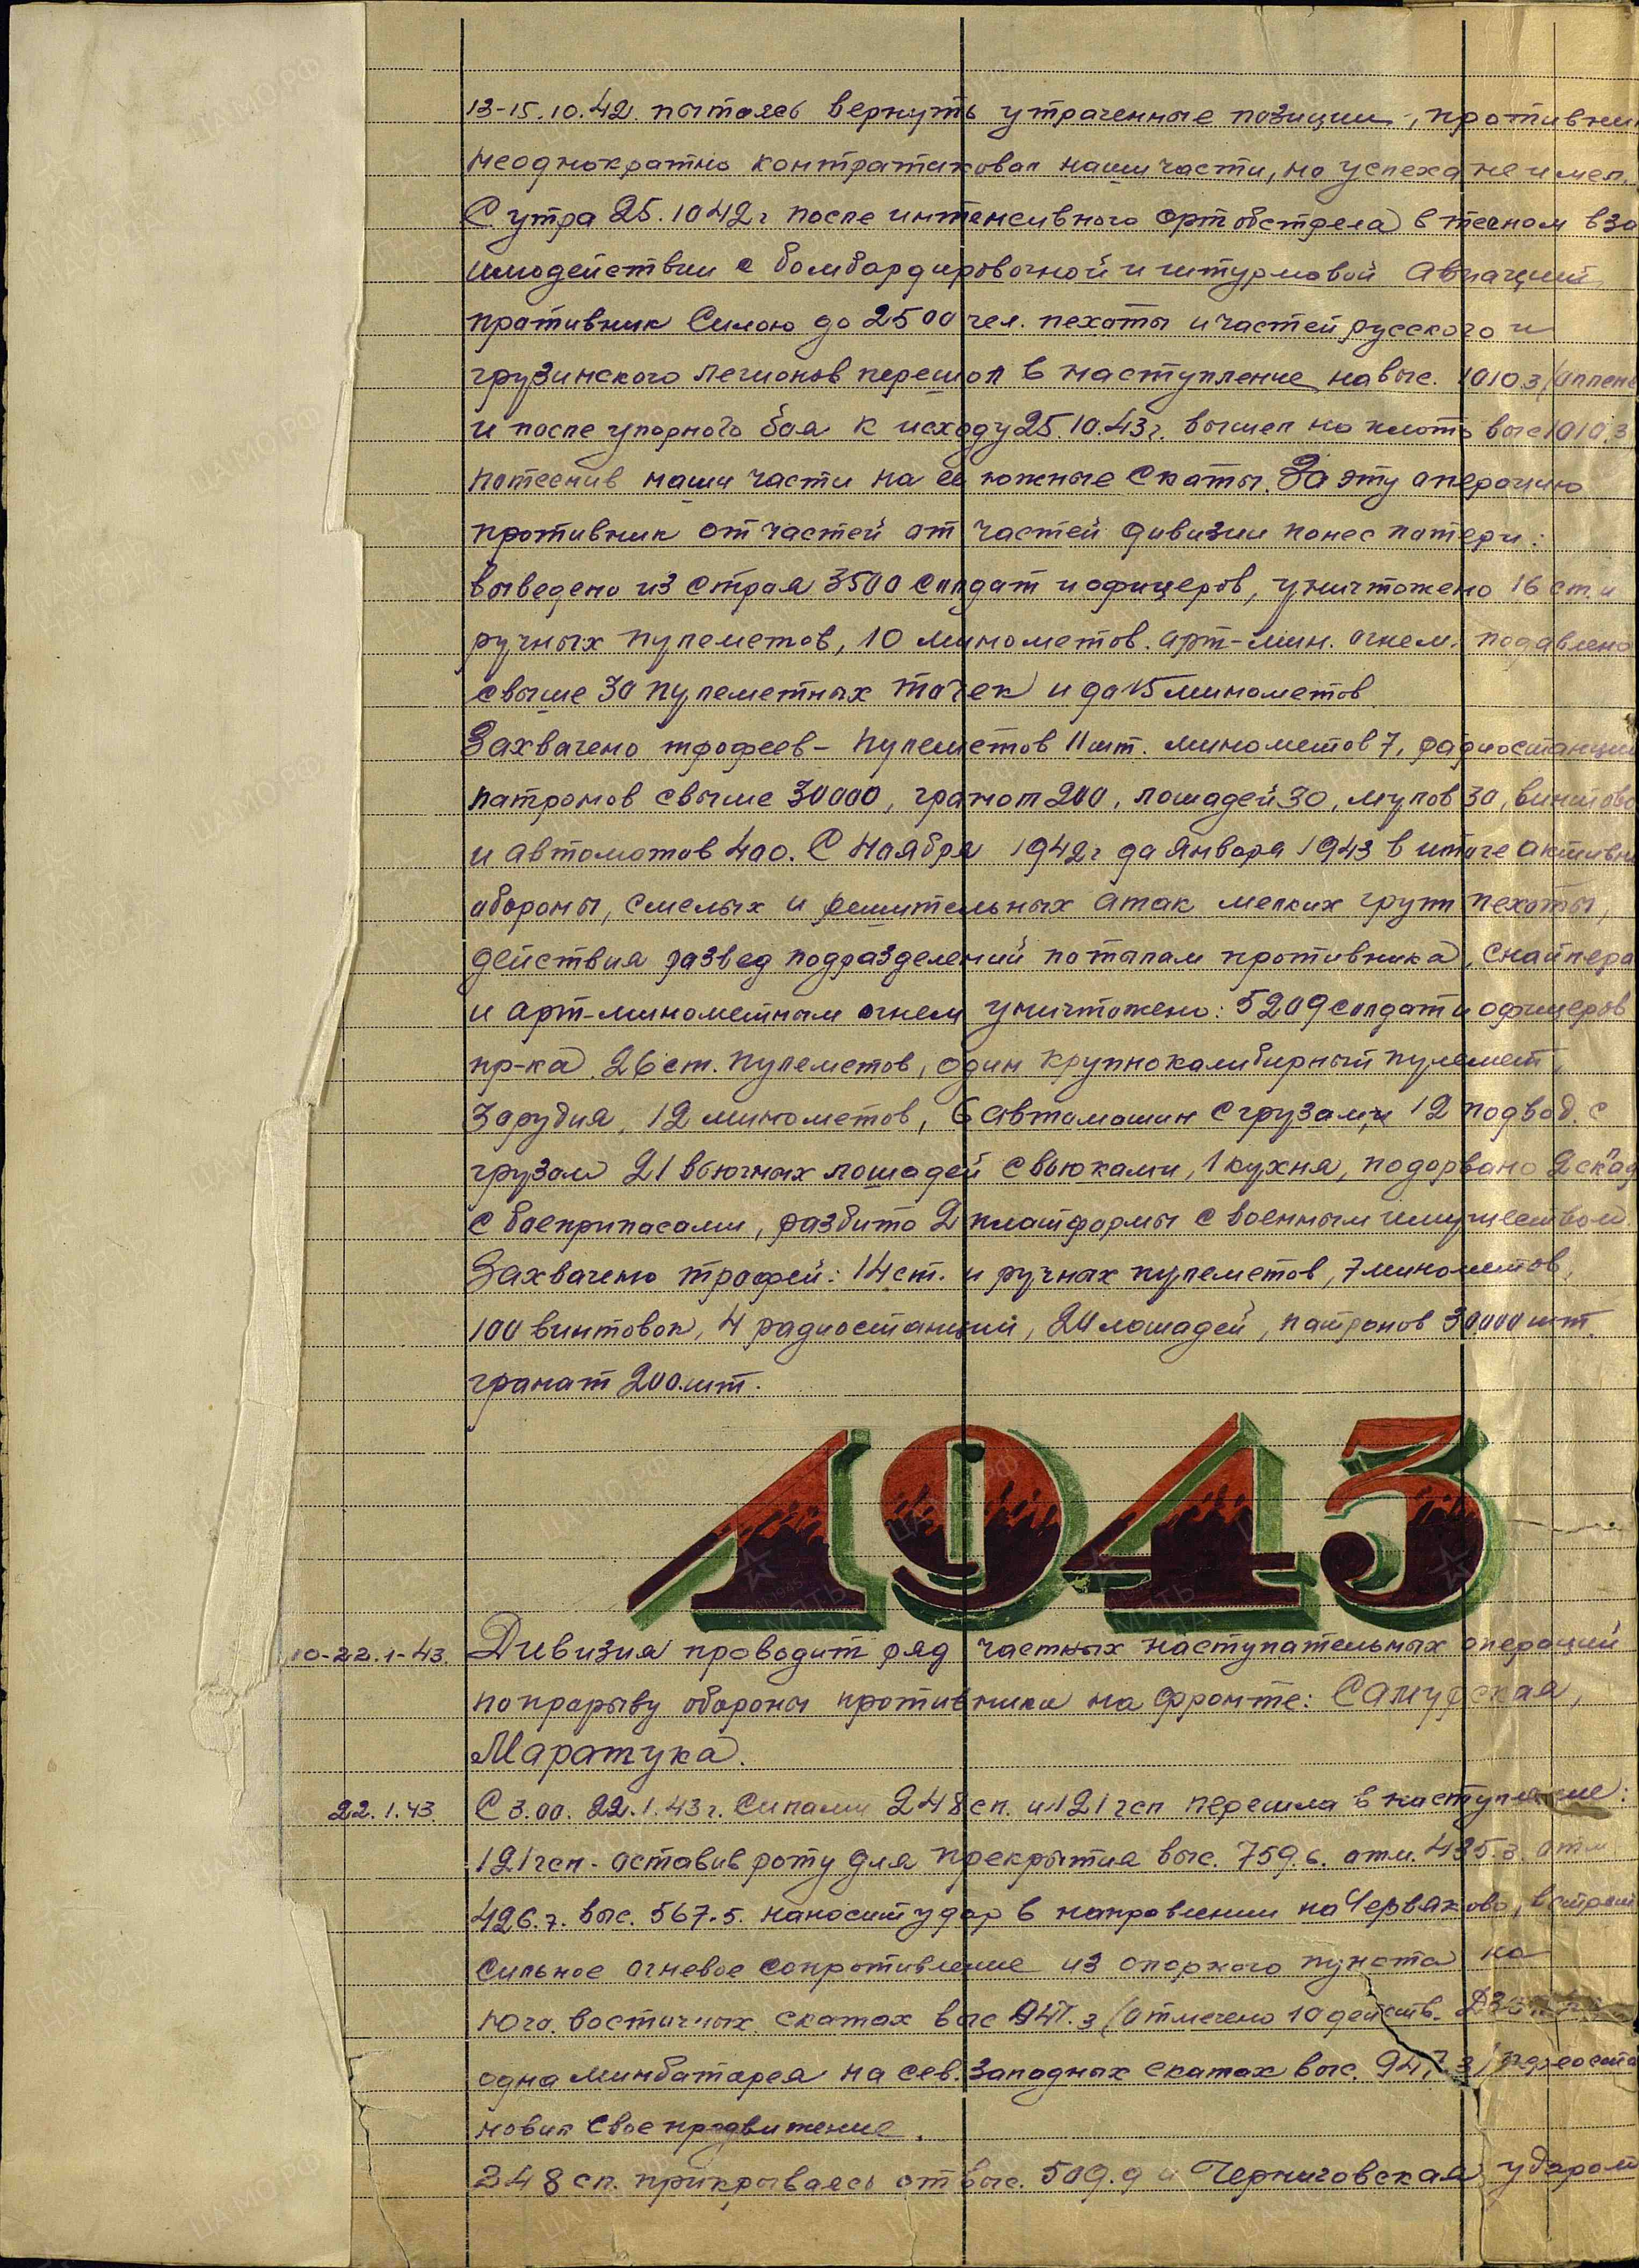 13-15.10.42. пытаясь вернуть утраченные позиции, противни
неоднократно контратаковал наши части, но успеха не имел.
С утра 25.10 42 г после интенсивного артобстрела в тесном вза
имодействии с бомбардировочной и штурмовой авиацией
противник Силою до 2500 чел. пехоты и частей русского и
грузинского легионов перешол в наступление на выс. 1010.3
и после упорного боя к исходу 25.10.43г. вышел на плато выс 1010.3
потеснив наши части на ее южные скаты. За эту операцию
противник от частей от частей дивизии понес потери:
выведено из строя 3500 солдат и офицеров, уничтожено 16 ст. и
ручных пулеметов, 10 минометов. арт-мин. огнем. подавлено
свыше 30 пулеметных точек и до 15 минометов
Захвачено трофеев- пулеметов 11 шт. минометов 7, радиостанции
патронов свыше 30000, гранот 200, лошадей 30, мулов 30, винтово
и автоматов 400. С Ноября 1942г до Января 1943 в итоге активн
обороны, смелых и решительных атак мелких групп пехоты,
действия развед подразделений по тылам противника, снайпера
и арт-минометным огнем уничтожено: 5209 солдат и офицеров
пр-ка. 26 ст. пулеметов, один крупнокалибирный пулемет,
3 орудия, 12 минометов, 6 автомашин с грузами 12 подвод. с
грузом 21 вьючных лошадей с вьюками, 1 кухня, подорвано 2 склад
с боеприпасами, разбито 2 платформы с военным имуществом.
Захвачено трофей: 14 ст. и ручных пулеметов, 7 минометов,
100 винтовок, 4 радиостанций, 20 лошадей, патронов 30000 шт.
гранат 200 шт.
1943
10-22.1-43. Дивизия проводит ряд частных наступательных операций
по прорыву обороны противника на фронте: Самурская,
Маратука.
22.1.43. С 3.00. 22.1.43г. Силами 248 сп. и 121 гсп перешла в наступление:
121 гсп- оставив роту для прекрытия выс. 759.6. отм. 435.3. отм
426.7. выс. 567.5. наносит удар в направлении на Червяково, встрет
сильное огневое сопротивление из опорного пункта на
Юго. восточных скатах выс 947.3 (отмечено 10 действ.
одна минбатарея на сев. западных скатах выс. 947.3) преоста
новил свое продвижение.
348 сп. прикрываясь от выс. 509.9 и Черниговская ударом